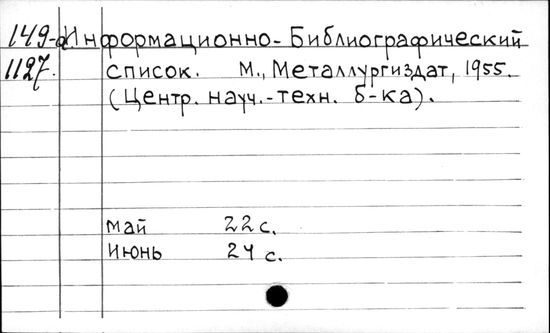 149-а Информационно-Библиографический
1127. список. М., Металлургиздат, 1955.
(Центр. науч.-техн. б-ка).
май 22 с.
июнь 24 с.